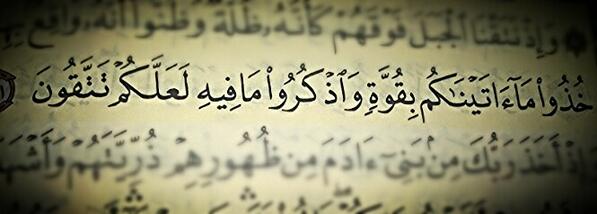 وَإِذْ نَتَقْنَا ٱلْجَبَلَ فَوْقَهُمْ كَأَنَّهُۥ ظُلَّةٌ وَظَنُّوٓا۟ أَنَّهُۥ وَاقِعٌۢ
خُذُوا۟ مَآ ءَاتَيْنَٰكُم بِقُوَّةٍ وَٱذْكُرُوا۟ مَا فِيهِ لَعَلَّكُمْ تَتَّقُونَ
وَإِذْ أَخَذَ رَبُّكَ مِنۢ بَنِىٓ ءَادَمَ مِن ظُهُورِهِمْ ذُرِّيَّتَهُمْ